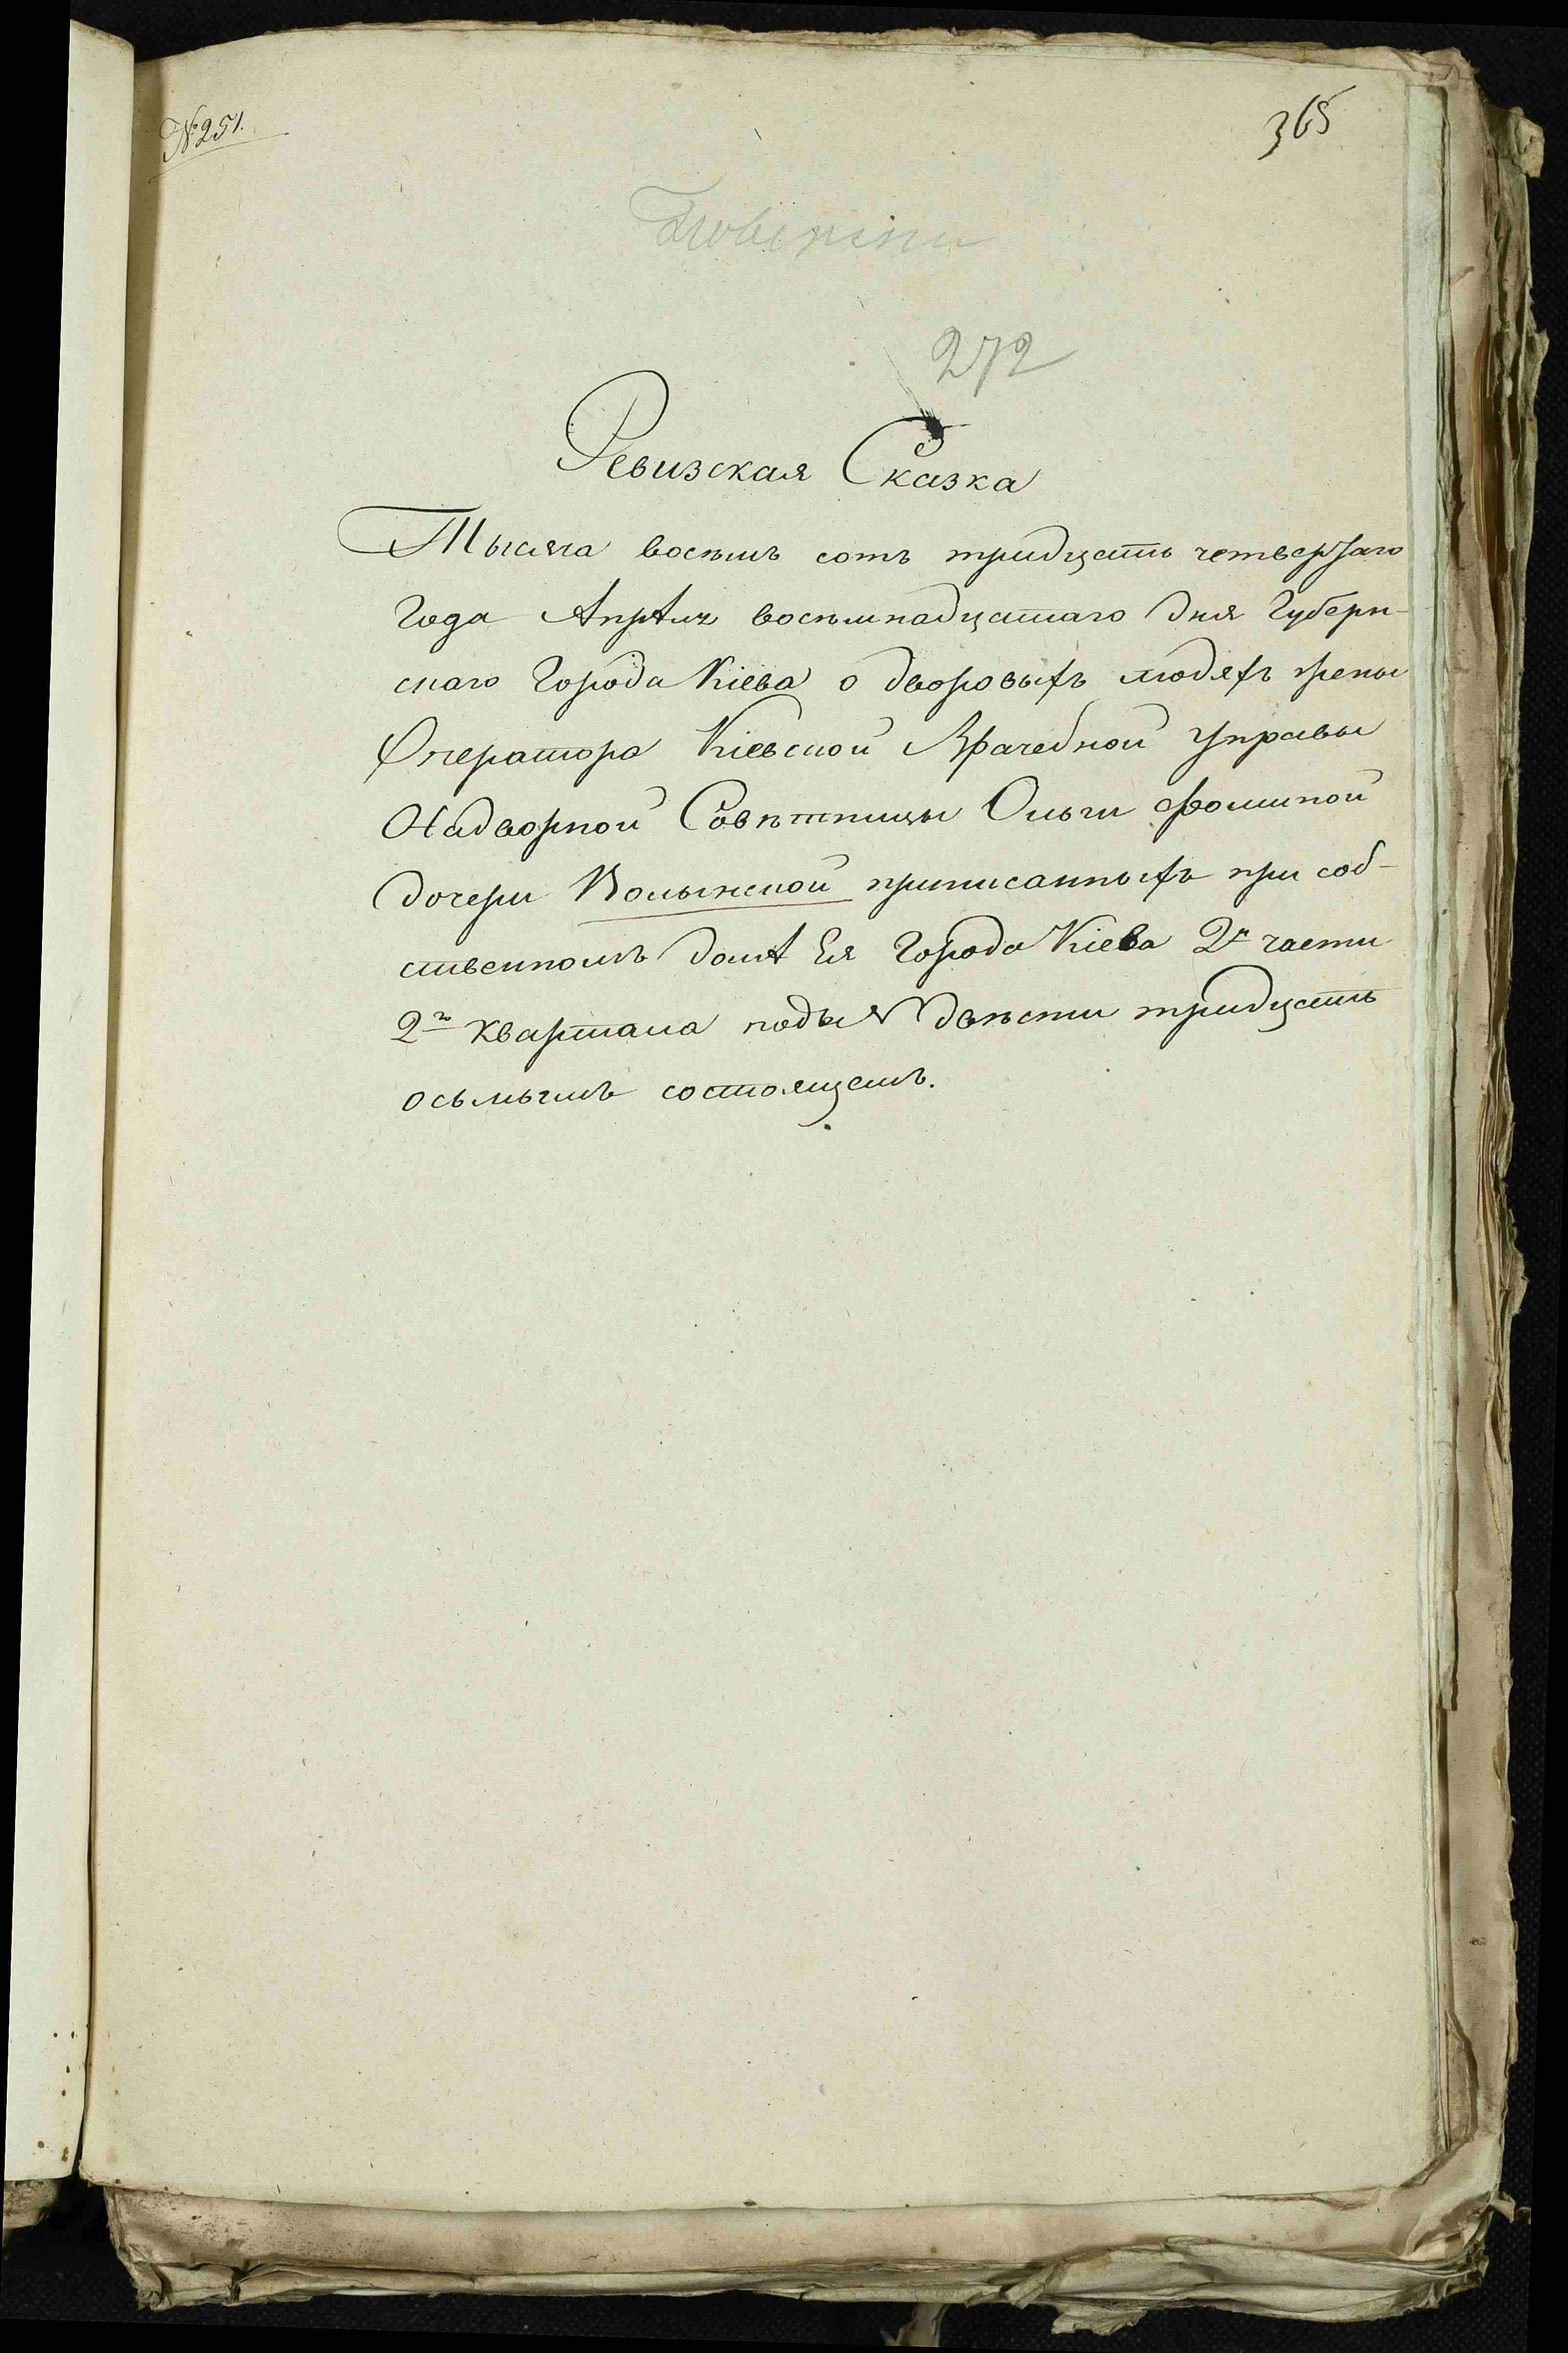 № 251.
365
272
Ревизская Сказка
Тысяча восемь сотъ тридцать четвертаго
Года Апрѣля восемнадцатаго Дня Губерн-
скаго Города Кіева о дворовыхъ людяхъ жены
Оператора Кіевской Врачебной Управы
Надворной Совѣтницы Ольги Фоминой
дочери Волынской приписанныхъ при соб-
ственномъ домѣ Ея Города Кіева 2й части
2го квартала подъ № двѣсти тридцать
осьмымъ состоящемъ.